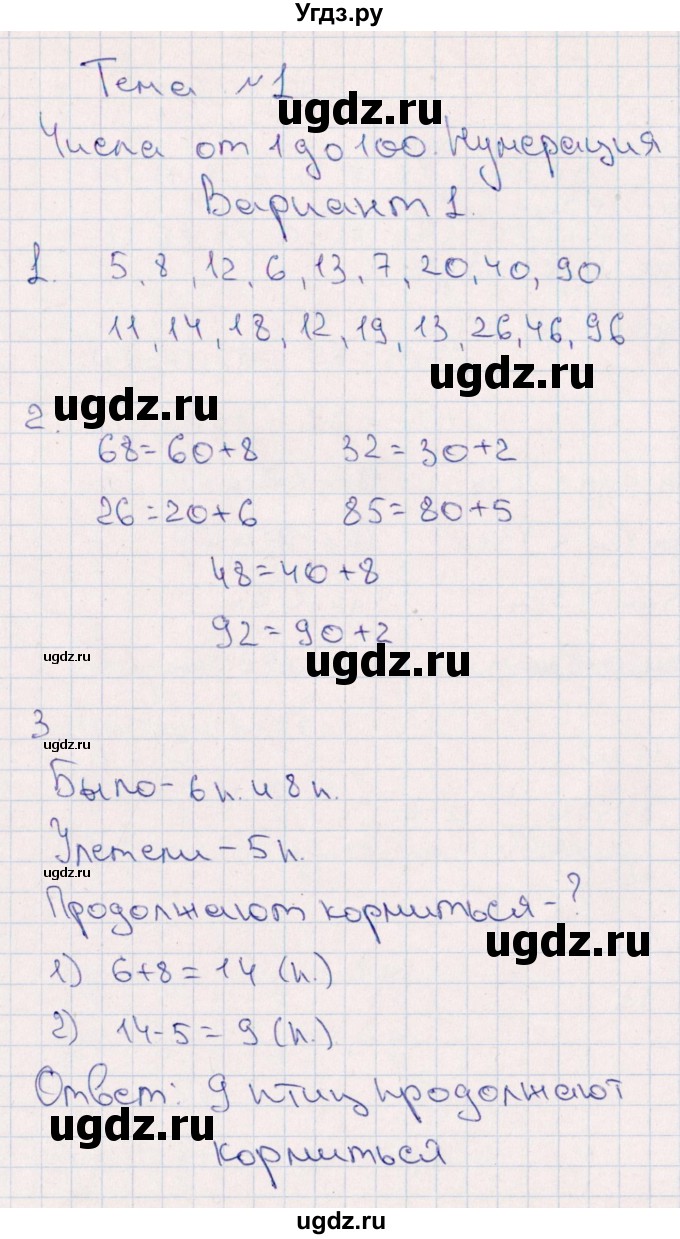 Угдз.ру
Тема №1
ugdz.ru
Числа от 1 до 100. Нумерация
Вариант 1.
1. 5, 8, 12, 6, 13, 7, 20, 40, 90
11, 14, 18, 12, 19, 13, 26, 46, 96
ugdz.ru
ugdz.ru
2.
68=60+8 32=30+2
26=20+6 85=80+5
48=40+8
92=90+2
ugdz.ru
ugdz.ru
3
ugdz.ru
Было - 6п. и 8п.
Улетели - 5п.
ugdz.ru
Продолжают кормиться - ?
ugdz.ru
1) 6+8=14 (п.)
2) 14-5=9 (п.)
Ответ: 9 птиц продолжают
ugdz.ru
кормиться
ugdz.ru